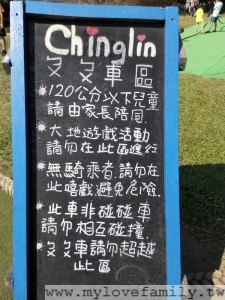 Chinglin
ㄆㄆ車區
120公分以下兒童
請由家長陪同.
大地遊戲活動
請勿在此區進行
無騎乘者,請勿在
此嬉戲避免危險.
此車非碰碰車
請勿相互碰撞.
ㄆㄆ車請勿超越
此區
www.mylovefamily.tw